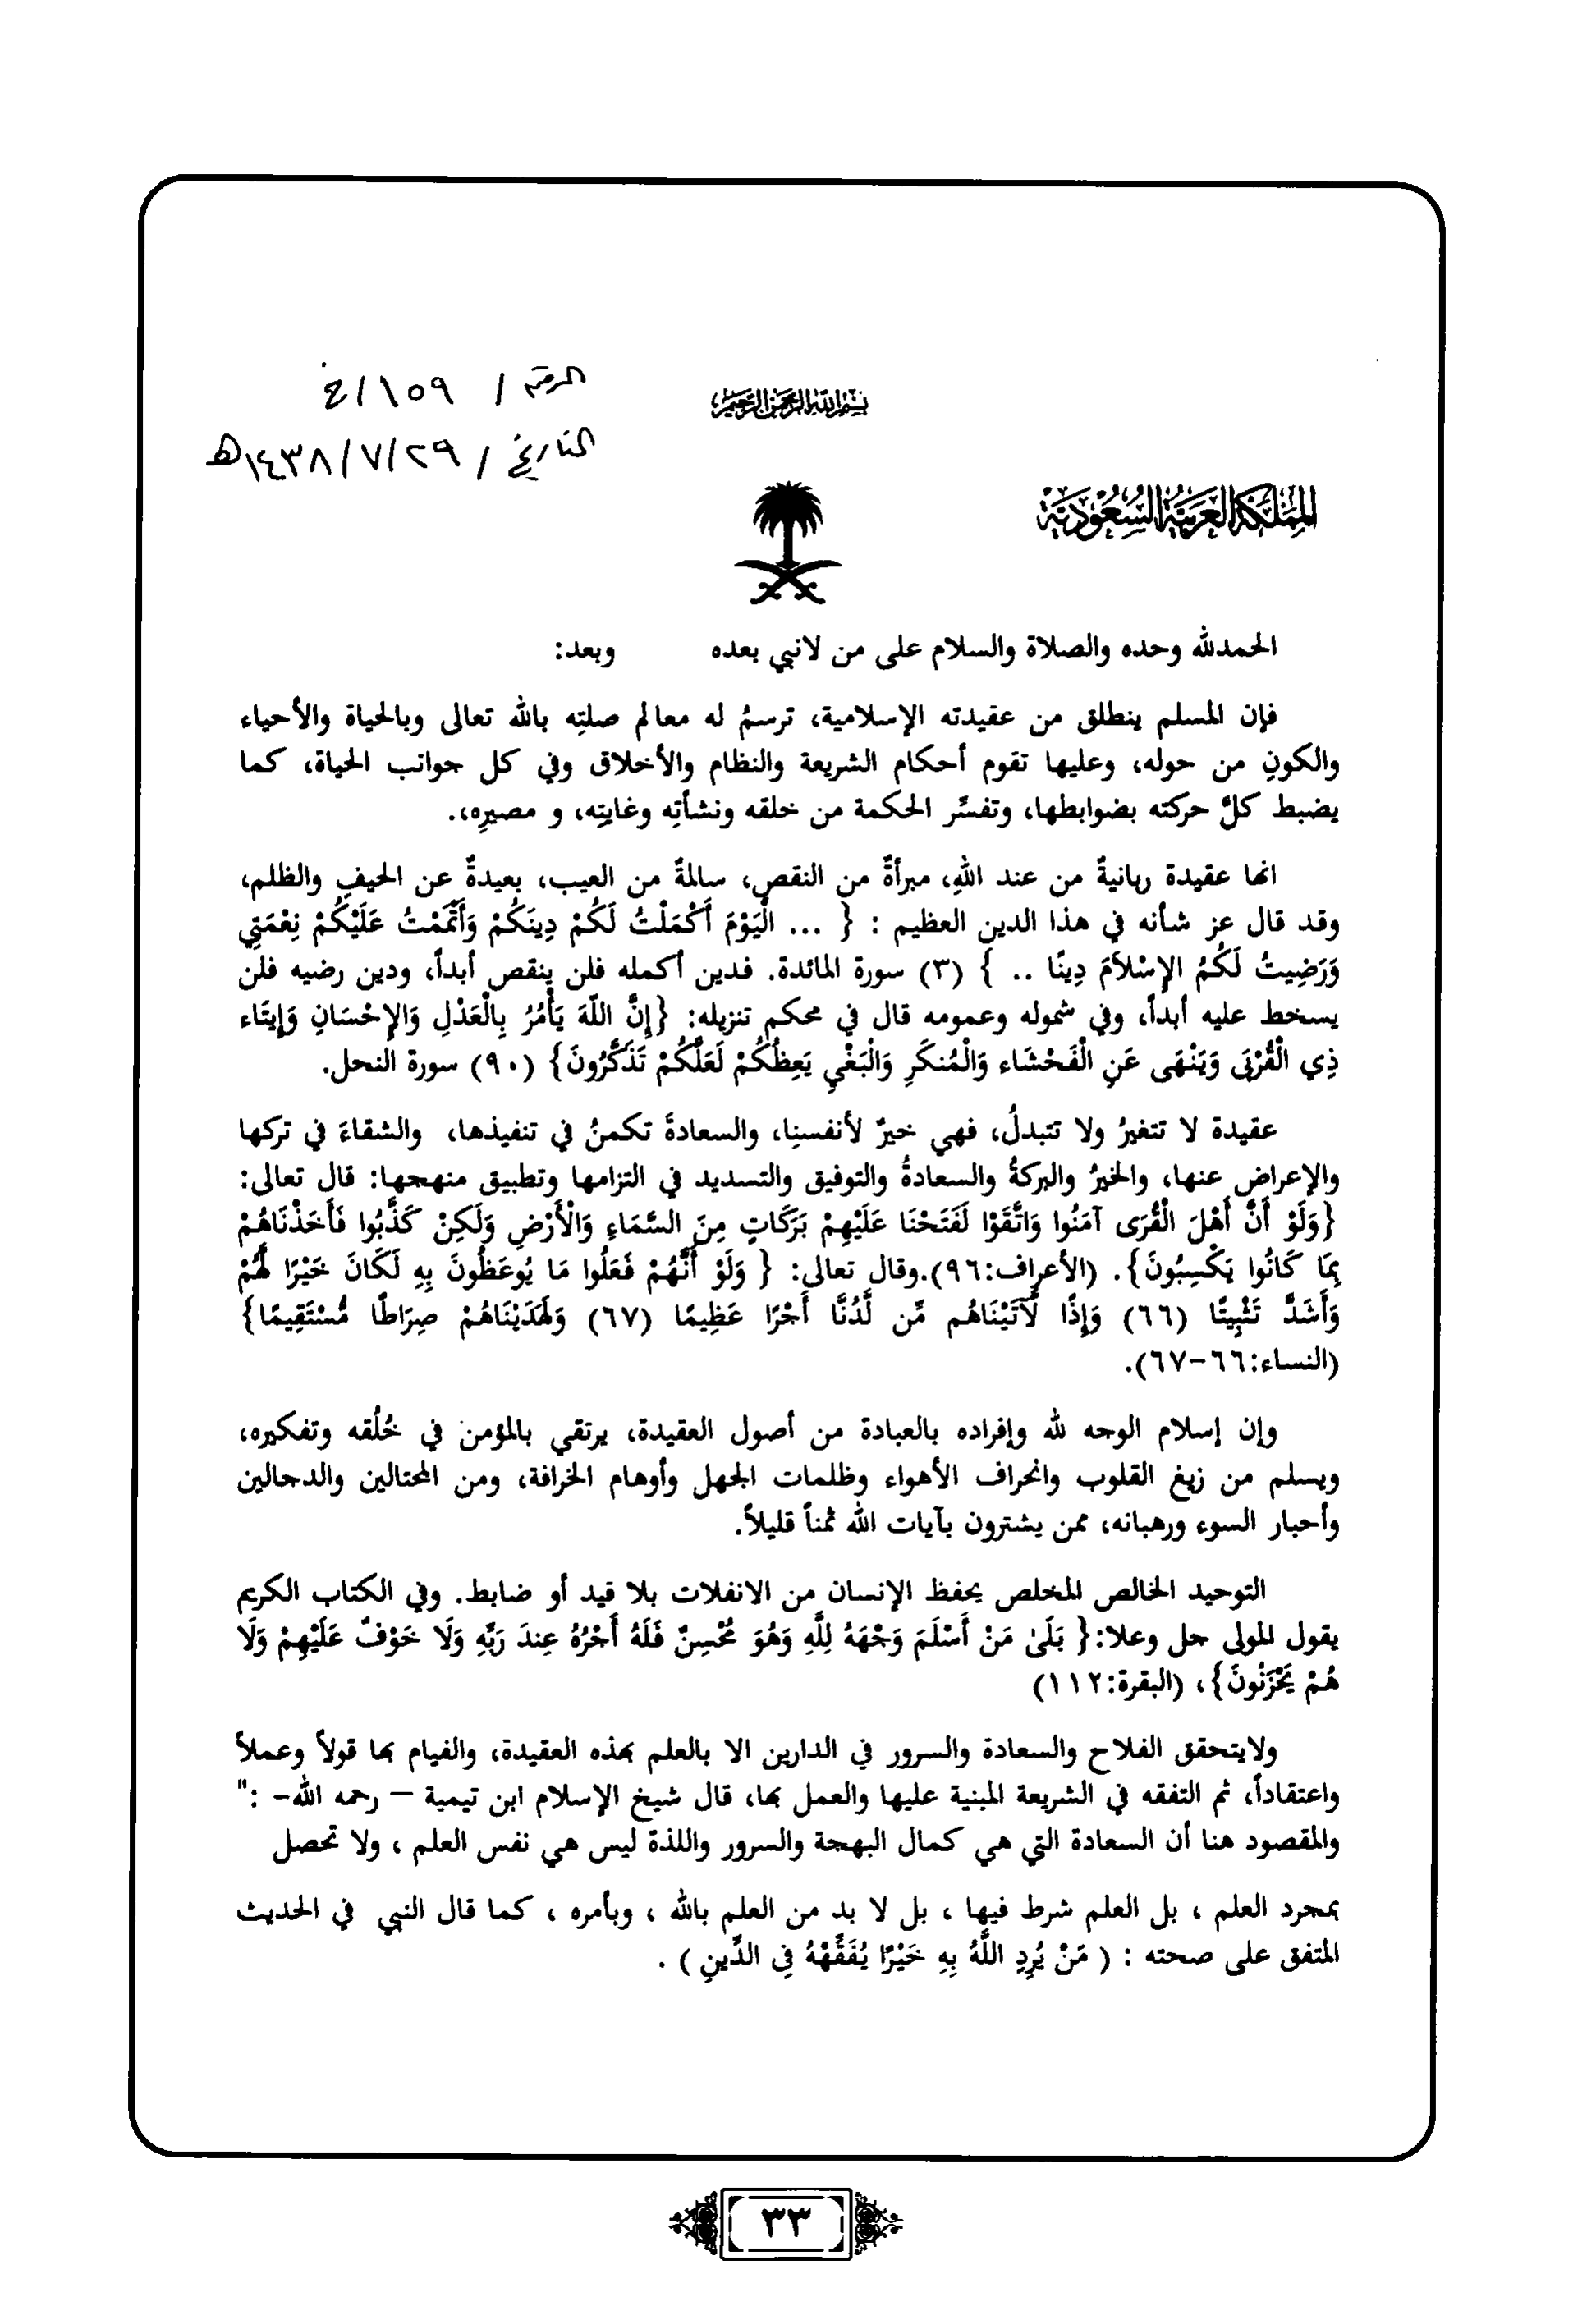 الرقم / ١٥٩/خ
بسم الله الرحمن الرحيم
التاريخ / ٢٩/٧/١٤٣٨هـ
المملكة العربية السعودية
الحمدلله وحده والصلاة والسلام على من لانبي بعده وبعد:
فإن المسلم ينطلق من عقيدته الإسلامية، ترسمُ له معالم صلتِه بالله تعالى وبالحياة والأحياء
والكونِ من حوله، وعليها تقوم أحكام الشريعة والنظام والأخلاق وفي كل جوانب الحياة، كما
يضبط كلَّ حركته بضوابطها، وتفسِّر الحكمة من خلقه ونشأتِه وغايتِه، و مصيرِه،.
انها عقيدة ربانيةٌ من عند اللهِ، مبرأةٌ من النقصِ، سالمةٌ من العيب، بعيدةٌ عن الحيفِ والظلم،
وقد قال عز شأنه في هذا الدين العظيم : { ... الْيَوْمَ أَكْمَلْتُ لَكُمْ دِينَكُمْ وَأَتْمَمْتُ عَلَيْكُمْ نِعْمَتِي
وَرَضِيتُ لَكُمُ الإِسْلاَمَ دِينًا .. } (٣) سورة المائدة. فدين أكمله فلن ينقص أبداً، ودين رضيه فلن
يسخط عليه أبداً، وفي شموله وعمومه قال في محكم تنزيله: {إِنَّ اللّهَ يَأْمُرُ بِالْعَدْلِ وَالإِحْسَانِ وَإِيتَاء
ذِي الْقُرْبَى وَيَنْهَى عَنِ الْفَحْشَاء وَالْمُنكَرِ وَالْبَغْيِ يَعِظُكُمْ لَعَلَّكُمْ تَذَكَّرُونَ} (٩٠) سورة النحل.
عقيدة لا تتغيرُ ولا تتبدلُ، فهي خيرٌ لأنفسنِا، والسعادةَ تكمنُ في تنفيذها، والشقاءَ في تركها
والإعراض عنها، والخيرُ والبركةُ والسعادةُ والتوفيق والتسديد في التزامها وتطبيق منهجها: قال تعالى:
{وَلَوْ أَنَّ أَهْلَ الْقُرَى آمَنُوا وَاتَّقَوْا لَفَتَحْنَا عَلَيْهِمْ بَرَكَاتٍ مِنَ السَّمَاءِ وَالْأَرْضِ وَلَكِنْ كَذَّبُوا فَأَخَذْنَاهُمْ
بِمَا كَانُوا يَكْسِبُونَ}. (الأعراف:٩٦).وقال تعالى: { وَلَوْ أَنَّهُمْ فَعَلُوا مَا يُوعَظُونَ بِهِ لَكَانَ خَيْرًا لَّهُمْ
وَأَشَدَّ تَثْبِيتًا (٦٦) وَإِذًا لَّآتَيْنَاهُم مِّن لَّدُنَّا أَجْرًا عَظِيمًا (٦٧) وَلَهَدَيْنَاهُمْ صِرَاطًا مُّسْتَقِيمًا}
(النساء:٦٦-٦٧).
وإن إسلام الوجه لله وإفراده بالعبادة من أصول العقيدة، يرتقي بالمؤمن في خُلُقه وتفكيره،
ويسلم من زيغ القلوب وانحراف الأهواء وظلمات الجهل وأوهام الخرافة، ومن المحتالين والدجالين
وأحبار السوء ورهبانه، ممن يشترون بآيات الله ثمناً قليلاً.
التوحيد الخالص المخلص يحفظ الإنسان من الانفلات بلا قيد أو ضابط. وفي الكتاب الكريم
يقول المولى جل وعلا:{ بَلَىٰ مَنْ أَسْلَمَ وَجْهَهُ لِلَّهِ وَهُوَ مُحْسِنٌ فَلَهُ أَجْرُهُ عِندَ رَبِّهِ وَلَا خَوْفٌ عَلَيْهِمْ وَلَا
هُمْ يَحْزَنُونَ}، (البقرة:١١٢)
ولايتحقق الفلاح والسعادة والسرور في الدارين الا بالعلم بهذه العقيدة، والقيام بها قولاً وعملاً
واعتقاداً، ثم التفقه في الشريعة المبنية عليها والعمل بها، قال شيخ الإسلام ابن تيمية – رحمه الله- :"
والمقصود هنا أن السعادة التي هي كمال البهجة والسرور واللذة ليس هي نفس العلم ، ولا تحصل
بمجرد العلم ، بل العلم شرط فيها ، بل لا بد من العلم بالله ، وبأمره ، كما قال النبي في الحديث
المتفق على صحته : ( مَنْ يُرِدِ اللَّهُ بِهِ خَيْرًا يُفَقِّهْهُ فِي الدِّينِ ) .
٣٣